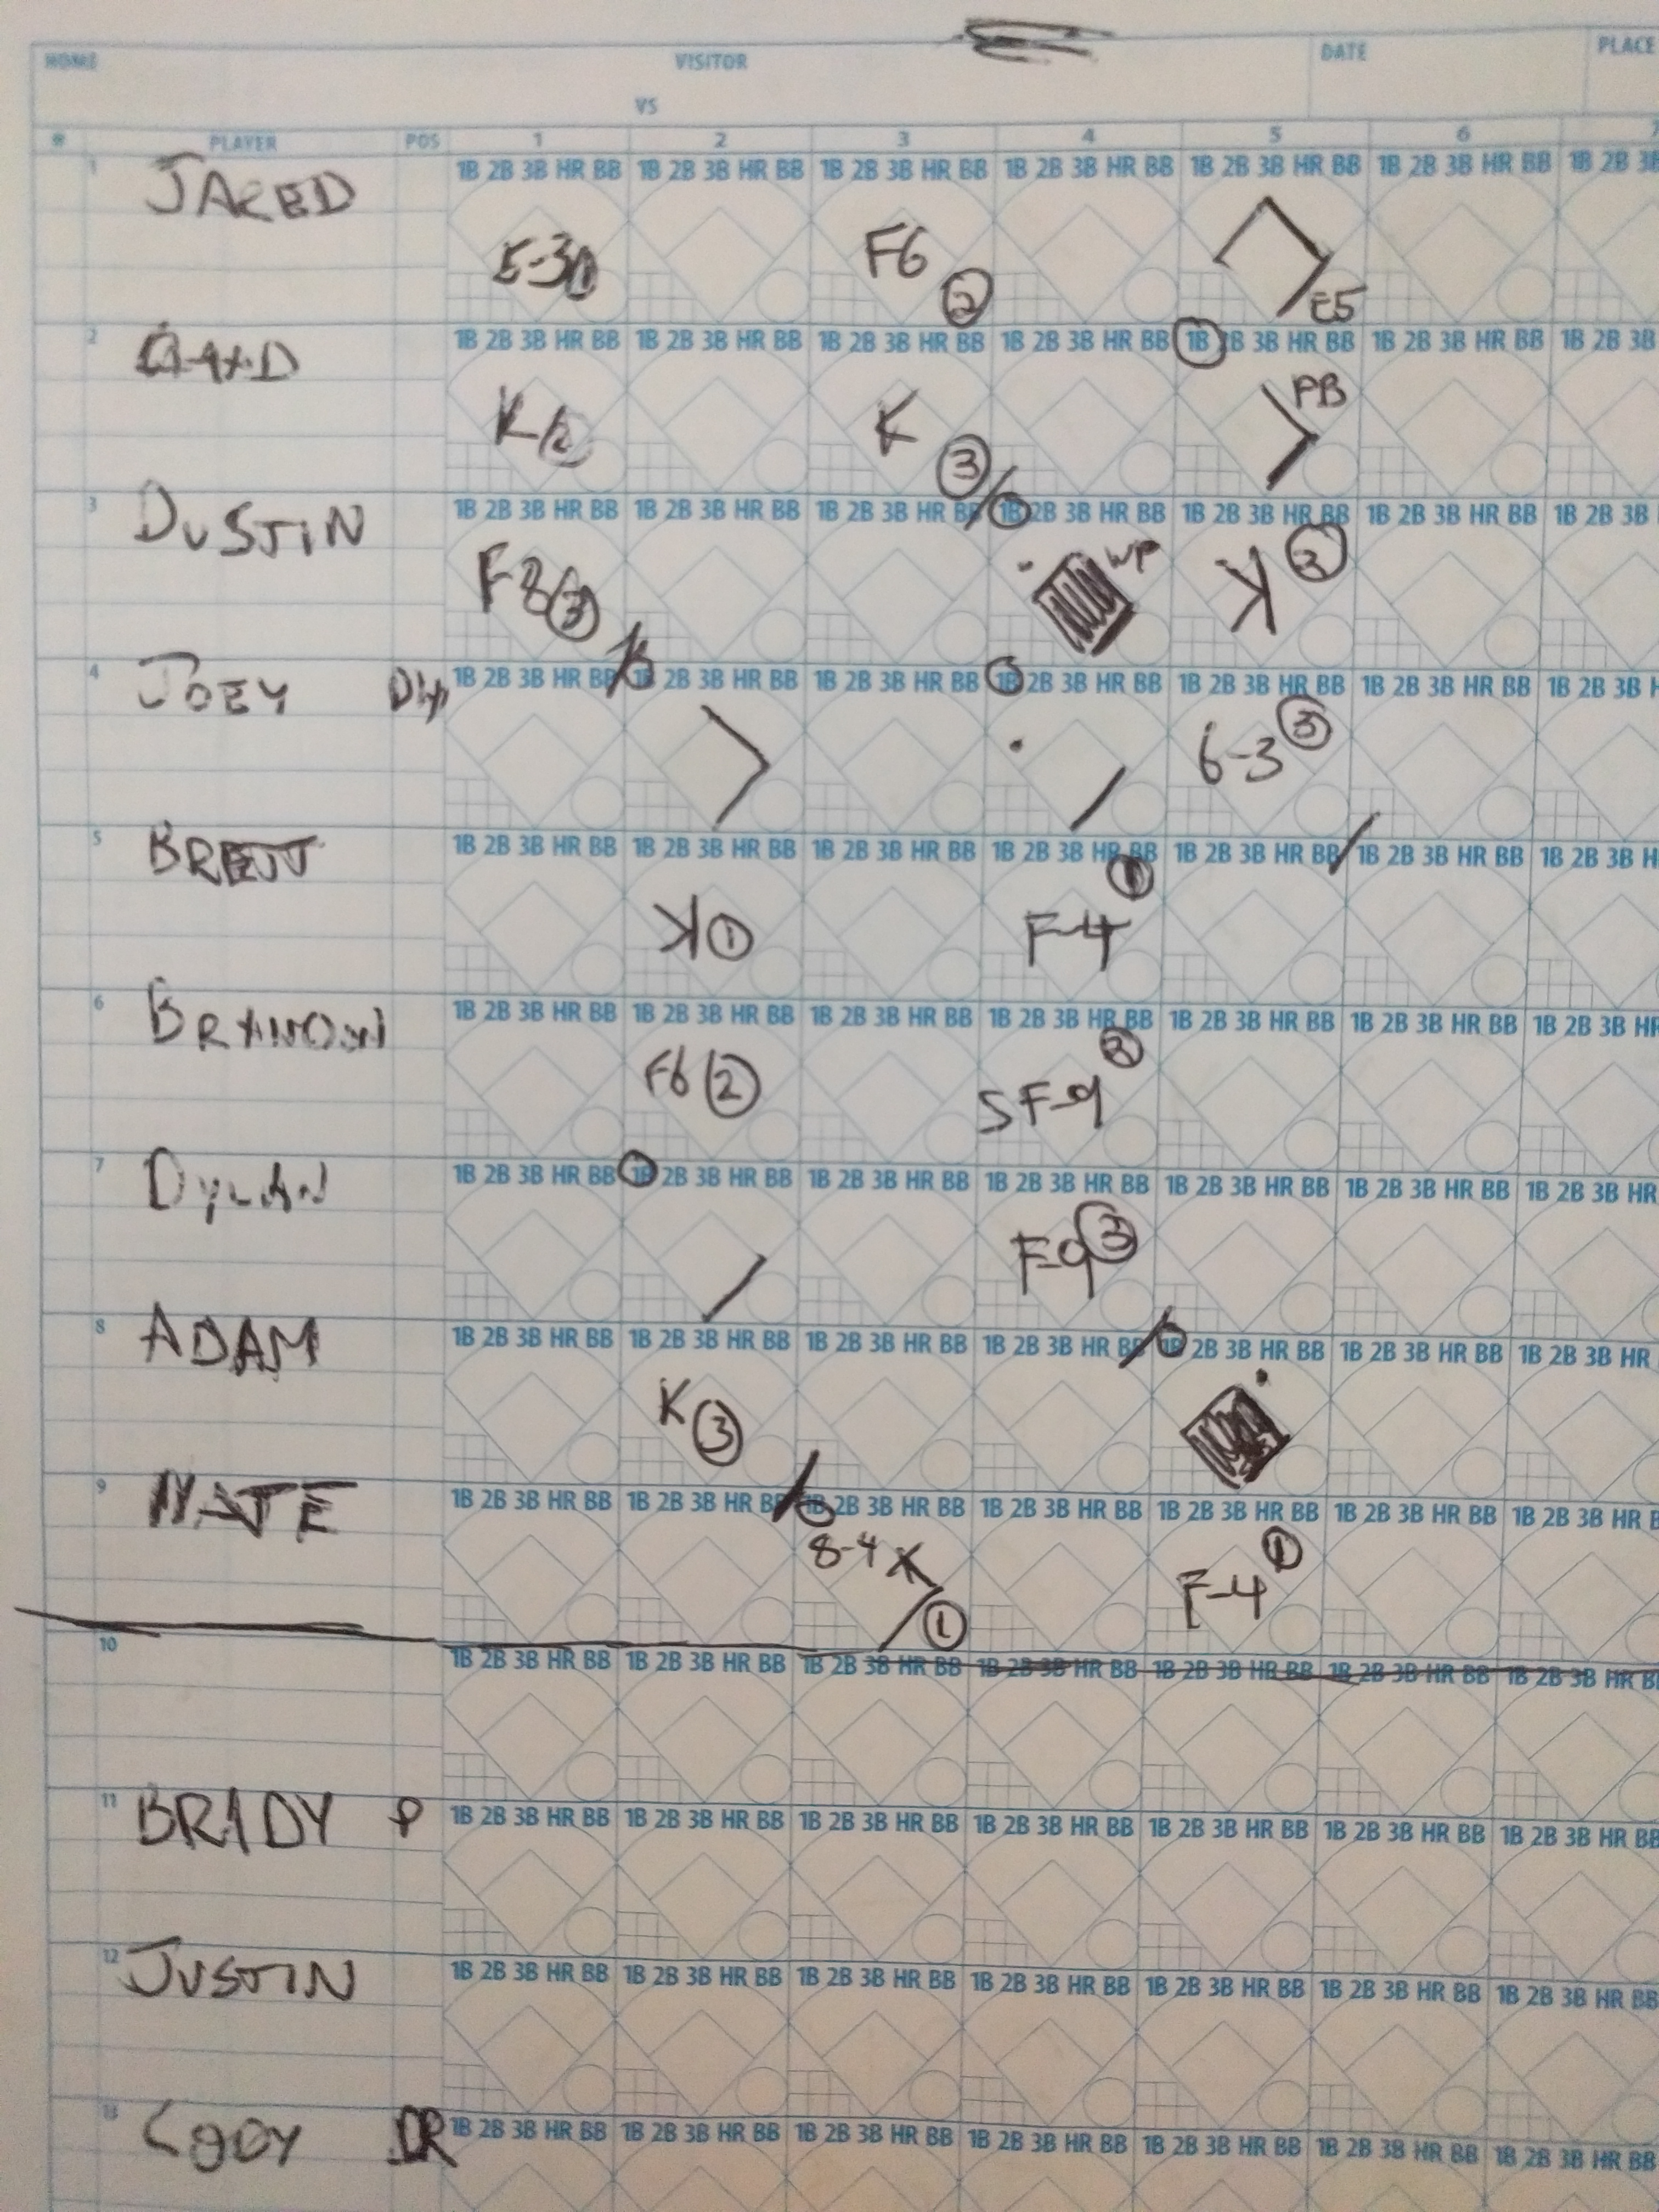 HOME VISITOR DATE PLACE
VS
# PLAYER POS 1 2 3 4 5 6 7
1 JARED 1B 2B 3B HR BB 1B 2B 3B HR BB 1B 2B 3B HR BB 1B 2B 3B HR BB 1B 2B 3B HR BB 1B 2B 3B HR BB 1B 2B 3B
5-3 1 F6 2 E5
2 1B 2B 3B HR BB 1B 2B 3B HR BB 1B 2B 3B HR BB 1B 2B 3B HR BB 1B 2B 3B HR BB 1B 2B 3B HR BB 1B 2B 3B
K 2 K 3 PB
3 DUSTIN 1B 2B 3B HR BB 1B 2B 3B HR BB 1B 2B 3B HR BB 1B 2B 3B HR BB 1B 2B 3B HR BB 1B 2B 3B HR BB 1B 2B 3B
F8 3 WP K 2
4 JOEY 1B 2B 3B HR BB 1B 2B 3B HR BB 1B 2B 3B HR BB 1B 2B 3B HR BB 1B 2B 3B HR BB 1B 2B 3B HR BB 1B 2B 3B H
6-3 3
5 BRETT 1B 2B 3B HR BB 1B 2B 3B HR BB 1B 2B 3B HR BB 1B 2B 3B HR BB 1B 2B 3B HR BB 1B 2B 3B HR BB 1B 2B 3B H
K 1 F-4 1
6 1B 2B 3B HR BB 1B 2B 3B HR BB 1B 2B 3B HR BB 1B 2B 3B HR BB 1B 2B 3B HR BB 1B 2B 3B HR BB 1B 2B 3B HR
F6 2 SF-9 2
7 DYLAN 1B 2B 3B HR BB 1B 2B 3B HR BB 1B 2B 3B HR BB 1B 2B 3B HR BB 1B 2B 3B HR BB 1B 2B 3B HR BB 1B 2B 3B HR
F-9 3
8 ADAM 1B 2B 3B HR BB 1B 2B 3B HR BB 1B 2B 3B HR BB 1B 2B 3B HR BB 1B 2B 3B HR BB 1B 2B 3B HR BB 1B 2B 3B HR
K 3
9 NATE 1B 2B 3B HR BB 1B 2B 3B HR BB 1B 2B 3B HR BB 1B 2B 3B HR BB 1B 2B 3B HR BB 1B 2B 3B HR BB 1B 2B 3B HR B
8-4 X 1 F-4 1
10 1B 2B 3B HR BB 1B 2B 3B HR BB 1B 2B 3B HR BB 1B 2B 3B HR BB 1B 2B 3B HR BB 1B 2B 3B HR BB 1B 2B 3B HR B
11 BRADY P 1B 2B 3B HR BB 1B 2B 3B HR BB 1B 2B 3B HR BB 1B 2B 3B HR BB 1B 2B 3B HR BB 1B 2B 3B HR BB 1B 2B 3B HR BB
12 JUSTIN 1B 2B 3B HR BB 1B 2B 3B HR BB 1B 2B 3B HR BB 1B 2B 3B HR BB 1B 2B 3B HR BB 1B 2B 3B HR BB 1B 2B 3B HR BB
13 CODY DR 1B 2B 3B HR BB 1B 2B 3B HR BB 1B 2B 3B HR BB 1B 2B 3B HR BB 1B 2B 3B HR BB 1B 2B 3B HR BB 1B 2B 3B HR BB